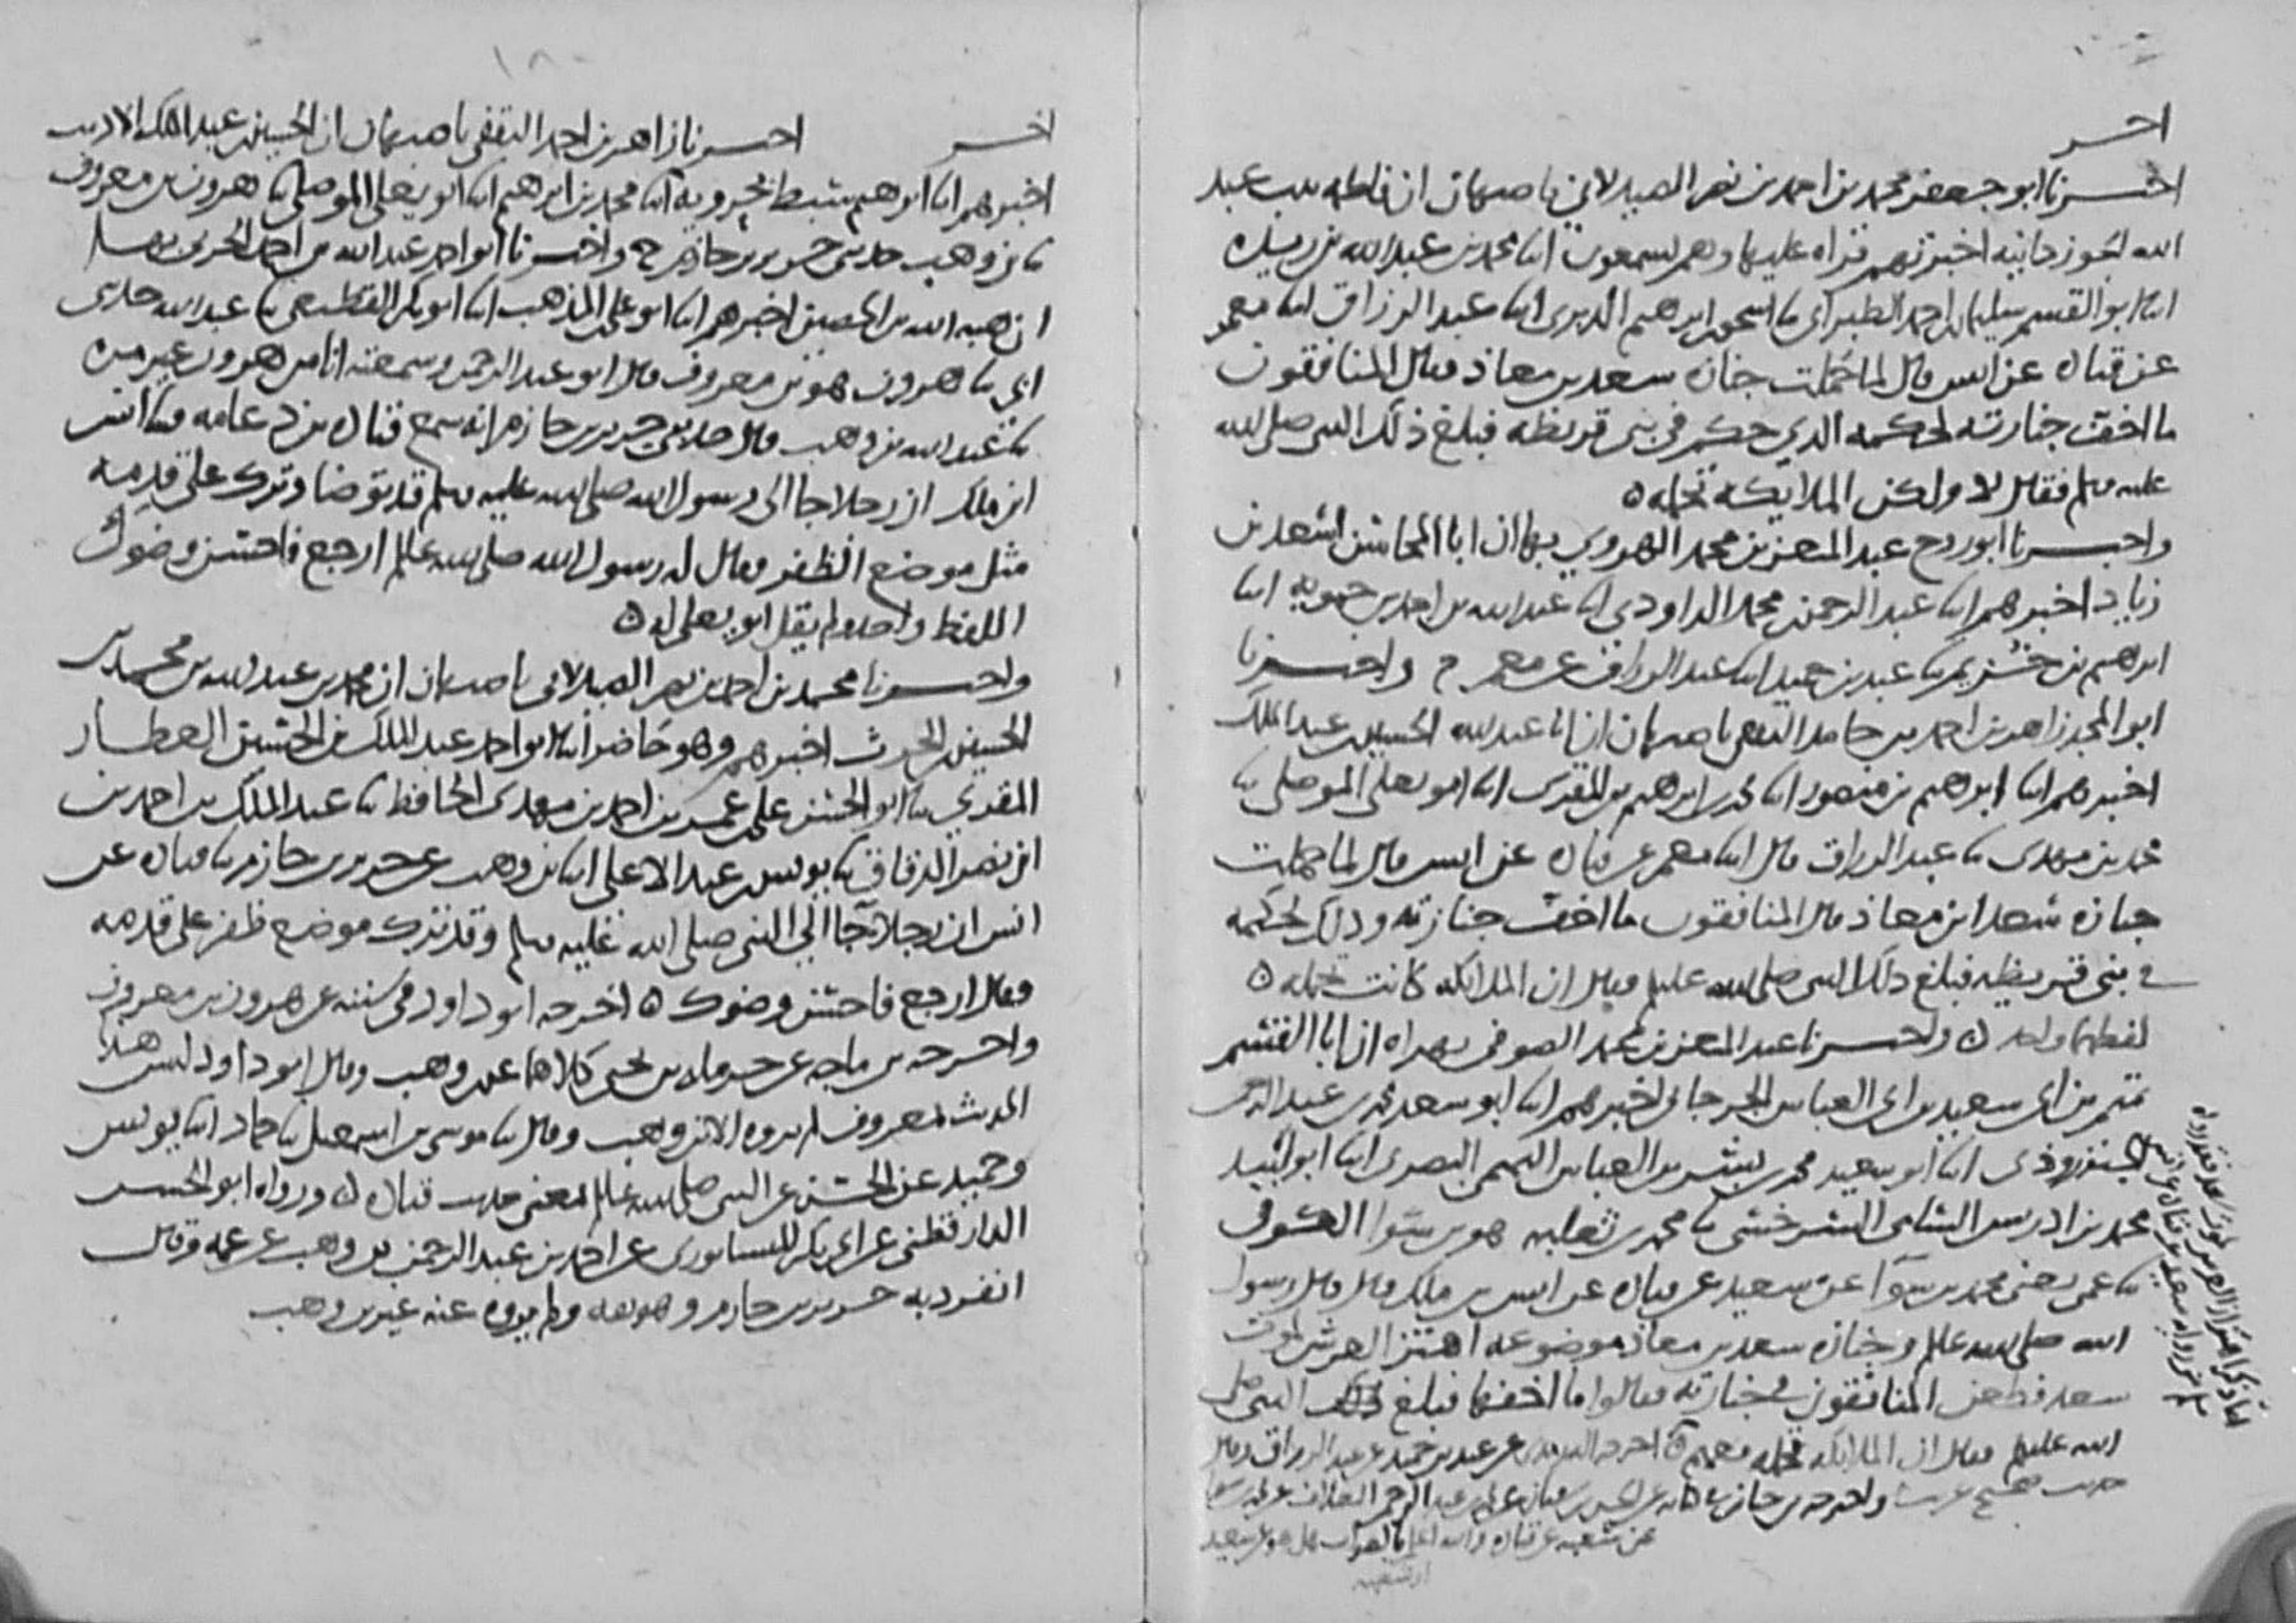 اخر
اخبرنا ابو جعفر محمد بن احمد بن نصر الصيدلاني باصبهان ان فاطمه بنت عبد
الله الجوزدانيه اخبرتهم قراه عليها وهم يسمعون ابنا محمد بن عبد الله بن ريذه
ابنا ابو القسم سليمان بن احمد الطبراني ثنا اسحق بن ابرهيم الدبري ابنا عبد الرزاق ابنا معمر
عن قتاده عن انس قال لما حملت جنازه سعد بن معاذ فقال المنافقون
ما اخف جنازته لحكمه الذي حكم في بني قريظه فبلغ ذلك النبي صلى الله
عليه وسلم فقال لا ولكن الملايكه تحمله ه
واخبرنا ابو روح عبد المعز بن محمد الهروي بها ان ابا المحاسن اسعد بن
زياد اخبرهم ابنا عبد الرحمن بن محمد الداودي ابنا عبد الله بن احمد بن حمويه ابنا
ابرهيم بن خزيم ثنا عبد بن حميد ابنا عبد الرزاق عن معمر ح واخبرنا
ابو المجد زاهر بن احمد بن حامد الثقفي باصبهان ان ابا عبد الله الحسين بن عبد الملك
اخبرهم ابنا ابرهيم بن منصور ابنا محمد بن ابرهيم بن المقرى ابنا ابو يعلى الموصلي ثنا
محمد بن مهدى ثنا عبد الرزاق قال ابنا معمر عن قتاده عن انس قال لما حملت
جنازه سعد ابن معاذ قال المنافقون ما اخف جنازته وذلك لحكمه
في بني قريظه فبلغ ذلك النبي صلى الله عليه وسلم فقال ان الملايكه كانت تحمله ه
لفظهما واحد ه واخبرنا عبد المعز بن محمد الصوفي بهراه ان ابا القسم
تميم بن ابي سعيد بن ابي العباس الجرجاني اخبرهم ابنا ابو سعد محمد بن عبد الرحمن
الجنزروذى ابنا ابو سعيد محمد بن بشر بن العباس التميمي البصرى ابنا ابو لبيد
محمد بن ادريس الشامي السرخسي ثنا محمد بن ثعلبه هو بن سوا السدوسي
ثنا عمي يعني محمد بن سوآ عن سعيد عن قتاده عن انس بن ملك قال قال رسول
الله صلى الله عليه وسلم وجنازه سعد بن معاذ موضوعه اهتز العرش لموت
سعد فطعن المنافقون في جنازته فقالوا ما اخفها فبلغ ذلك النبي صلى
الله عليه وسلم فقال ان الملايكه تحمله معهم ه اخرجه الترمذي عن عبد بن حميد عن عبد الرزاق وقال
حديث صحيح غريب واخرجه بن حبان
عن شعبه عن قتاده والله اعلم بالصواب هل هو عن سعيد
او شعبه
اخر اخبرنا زاهر بن احمد الثقفي باصبهان ان الحسين بن عبد الملك الاديب
اخبرهم ابنا ابرهيم سبط بحرويه ابنا محمد بن ابرهيم ابنا ابو يعلى الموصلي ثنا هرون بن معروف
ثنا بن وهب حدثني جرير بن حازم ح واخبرنا ابو احمد عبد الله بن احمد الحربي
ان هبه الله بن الحصين اخبرهم ابنا ابو علي بن المذهب ابنا ابو بكر القطيعي ثنا عبد الله حدثني
ابي ثنا هرون هو بن معروف قال ابو عبد الرحمن وسمعته انا من هرون غير مره
ثنا عبد الله بن وهب قال حدثني جرير بن حازم انه سمع قتاده بن دعامه ثنا انس
ابن ملك ان رجلا جا الى رسول الله صلى الله عليه وسلم قد توضا وترك على قدمه
مثل موضع الظفر فقال له رسول الله صلى الله عليه وسلم ارجع فاحسن وضوك
اللفظ واحد ولم يقل ابو يعلى له ه
واخبرنا محمد بن احمد بن نصر الصيدلاني باصبهان ان محمد بن عبد الله بن محمد بن
الحسين بن الحرث اخبرهم وهو حاضر ابنا ابو احمد عبد الملك بن الحسين العطار
المقري ثنا ابو الحسن علي بن عمر بن احمد بن مهدى الحافظ ثنا عبد الملك بن احمد بن
ابن نصر الدقاق ثنا يونس بن عبد الاعلى ابنا بن وهب عن جرير بن حازم ثنا قتاده عن
انس ان رجلا جا الى النبي صلى الله عليه وسلم وقد ترك موضع ظفر على قدمه
فقال ارجع فاحسن وضوك ه اخرجه ابو داود في سننه عن هرون بن معروف
واخرجه بن ماجه عن حرمله بن يحيى كلاهما عن بن وهب وقال ابو داود ليس هذا
الحديث بمعروف لم يروه الا بن وهب وقال ثنا موسى بن اسمعيل ثنا حماد ابنا يونس
وحميد عن الحسن عن النبي صلى الله عليه وسلم بمعنى حديث قتاده ه ورواه ابو الحسن
الدارقطني عن ابي بكر النيسابوري عن احمد بن عبد الرحمن بن وهب عن عمه وقال
انفرد به جرير بن حازم وهو ثقه ولم يروه عنه غير بن وهب